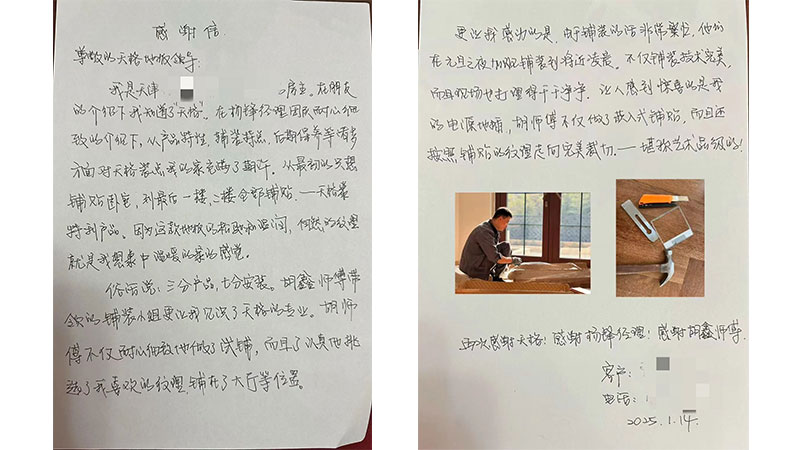 感谢信
尊敬的天格地板领导:
我是天津 房主。在朋友
的介绍下我知道了"天格"。在杨锋经理团队耐心细
致的介绍下,从产品特性,铺装特点,后期保养等诸多
方面对天格装点我的家充满了期许。从最初的只想
铺贴卧室,到最后一楼、二楼全部铺贴——天格莱
特利产品。因为这款地板的拍取和空间,自然的纹理
就是我想象中温暖的家的感觉。
俗话说:三分产品,七分安装。胡鑫师傅带
领的铺装小组更让我见识了天格的专业。胡师
傅不仅耐心细致地做了试铺,而且了认真地挑
选了我喜欢的纹理,铺在了大厅等位置。
更让我感动的是,由于铺装的活非常繁忙,他们
在元旦之夜仍旧铺装到将近凌晨。不仅铺装技术完美,
而且现场也打理得干干净净。让人感到惊喜的是我
的电源地插,胡师傅不仅做了嵌入式铺贴,而且还
按照铺贴的纹理走向完美裁切.——堪称艺术品级的!
再次感谢天格!感谢杨锋经理!感谢胡鑫师傅.
客户:
电话:
2025.1.14.